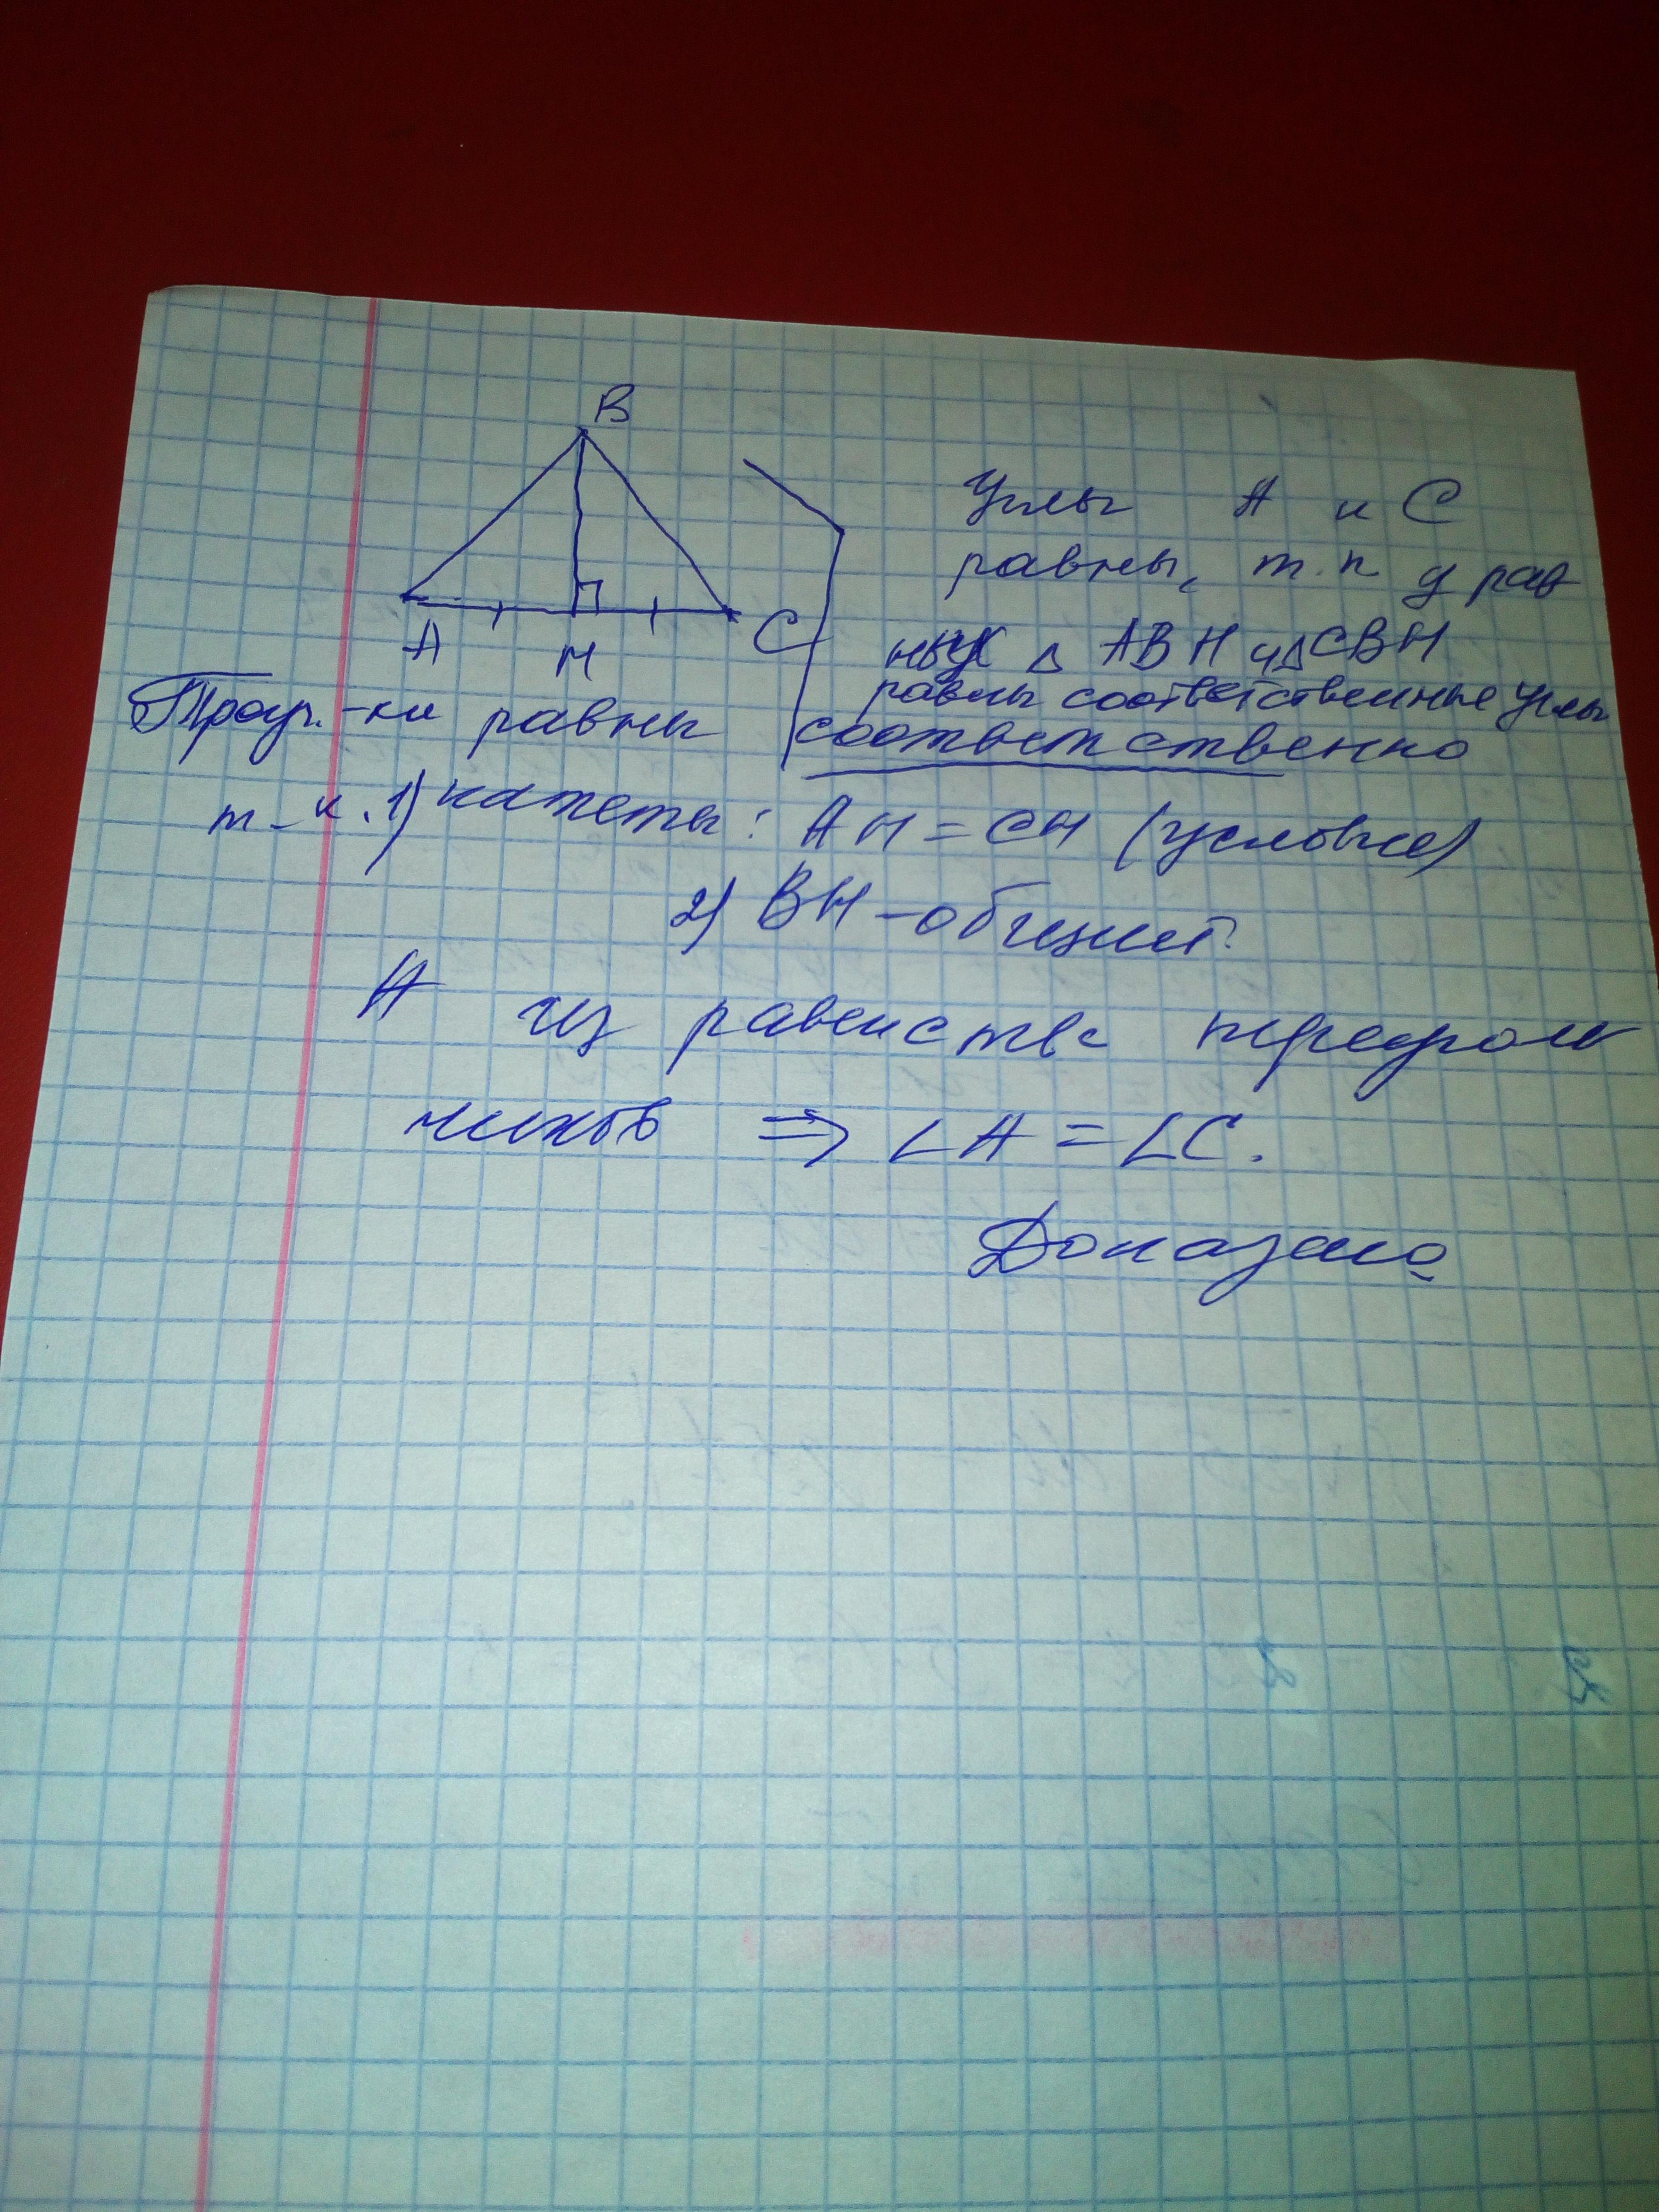 B
A H C
Углы A и C
равны, т.к у рав
ных △ ABH и △ CBH
равны соответственные углы
соответственно
Треуг.-ки равны
т-к. 1) катеты: AH = CH (условие)
2) BH - общий.
А из равенства треуголь
ников ⇒ ∠A = ∠C.
Доказано